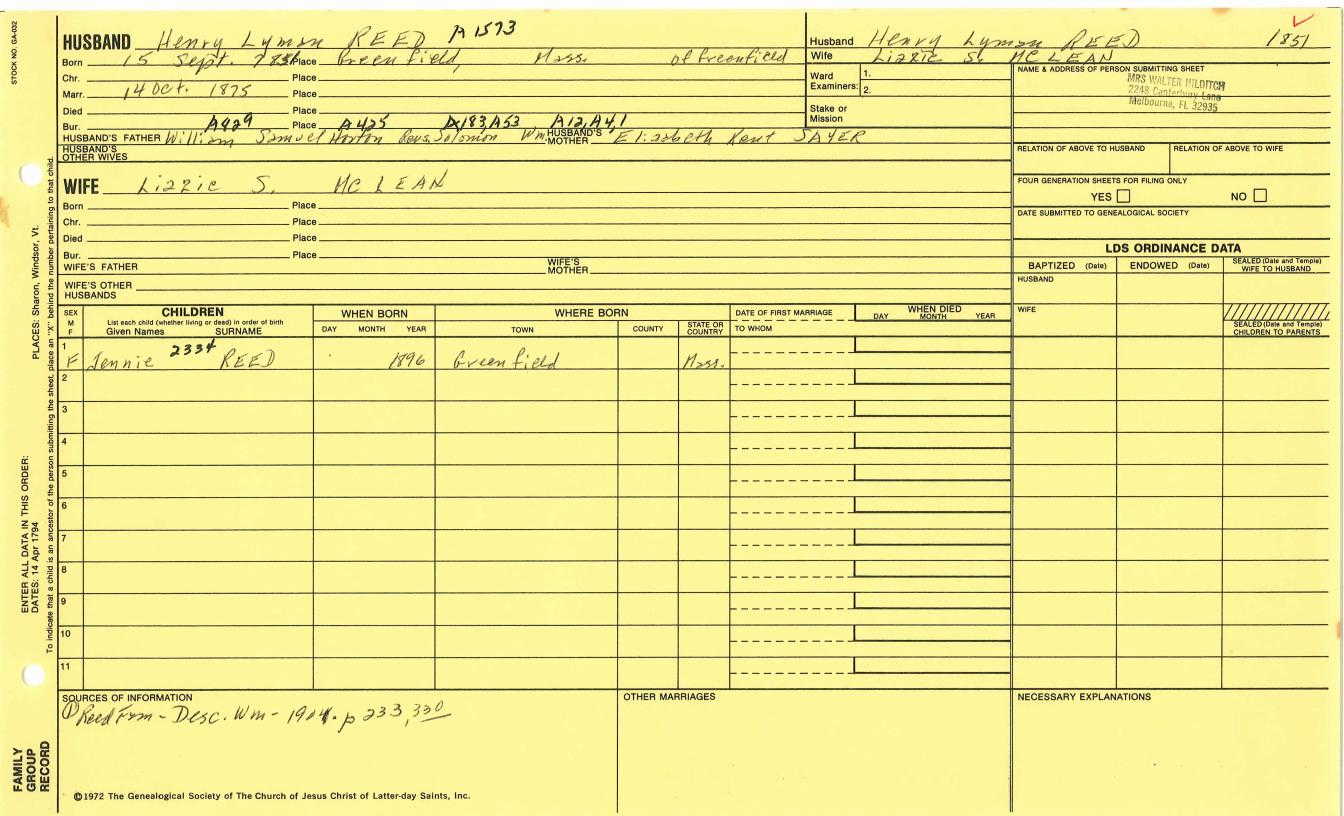 STOCK NO. GA-032
HUSBAND Henry Lyman REED A 1573
Born 15 Sept. 1851 Place Greenfield, Mass. of Greenfield
Chr. Place
Marr. 14 Oct. 1875 Place
Died Place
Bur. Place
A429 A425 A183, A53 A12, A4, 1
HUSBAND'S FATHER William Samuel Norton Revs. Solomon Wm. HUSBAND'S MOTHER Elizabeth Kent SAYER
HUSBAND'S OTHER WIVES
WIFE Lizzie S. MC LEAN
Born Place
Chr. Place
Died Place
Bur. Place
WIFE'S FATHER WIFE'S MOTHER
WIFE'S OTHER HUSBANDS
Husband Henry Lyman REED 1851
Wife Lizzie S. MC LEAN
Ward Examiners: 1.
2.
Stake or Mission
NAME & ADDRESS OF PERSON SUBMITTING SHEET
MRS WALTER HILDITCH
2248 Canterbury Lane
Melbourne, FL 32935
RELATION OF ABOVE TO HUSBAND RELATION OF ABOVE TO WIFE
FOUR GENERATION SHEETS FOR FILING ONLY
YES NO
DATE SUBMITTED TO GENEALOGICAL SOCIETY
LDS ORDINANCE DATA
BAPTIZED (Date) ENDOWED (Date) SEALED (Date and Temple) WIFE TO HUSBAND
HUSBAND
WIFE
SEALED (Date and Temple) CHILDREN TO PARENTS
SEX M F CHILDREN WHEN BORN WHERE BORN DATE OF FIRST MARRIAGE WHEN DIED
List each child (whether living or dead) in order of birth
Given Names SURNAME DAY MONTH YEAR TOWN COUNTY STATE OR COUNTRY TO WHOM DAY MONTH YEAR
1 F Jennie 2334 REED 1896 Greenfield Mass.
2
3
4
5
6
7
8
9
10
11
SOURCES OF INFORMATION OTHER MARRIAGES NECESSARY EXPLANATIONS
① Reed Fam - Desc. Wm - 1901. p 233, 330
©1972 The Genealogical Society of The Church of Jesus Christ of Latter-day Saints, Inc.
PLACES: Sharon, Windsor, Vt.
ENTER ALL DATA IN THIS ORDER:
DATES: 14 Apr 1794
To indicate that a child is an ancestor of the person submitting the sheet, place an "X" behind the number pertaining to that child.
FAMILY GROUP RECORD